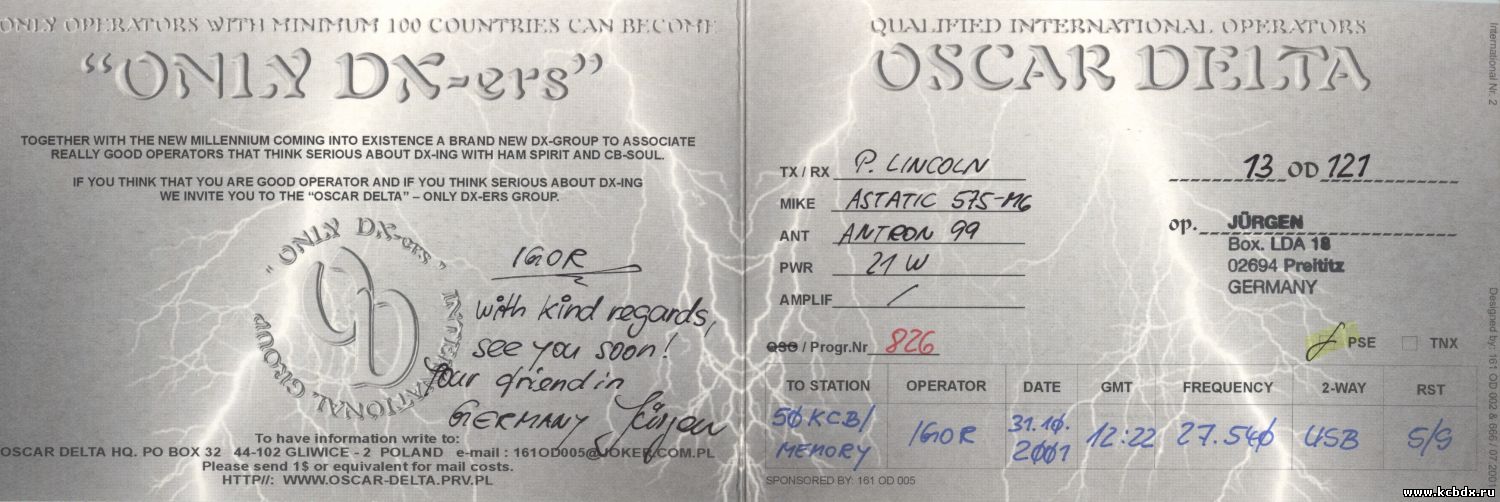 ONLY OPERATORS WITH MINIMUM 100 COUNTRIES CAN BECOME
“ONLY DX-ers”
TOGETHER WITH THE NEW MILLENNIUM COMING INTO EXISTENCE A BRAND NEW DX-GROUP TO ASSOCIATE
REALLY GOOD OPERATORS THAT THINK SERIOUS ABOUT DX-ING WITH HAM SPIRIT AND CB-SOUL.
IF YOU THINK THAT YOU ARE GOOD OPERATOR AND IF YOU THINK SERIOUS ABOUT DX-ING
WE INVITE YOU TO THE “OSCAR DELTA” – ONLY DX-ERS GROUP.
"ONLY DX-ers"
INTERNATIONAL GROUP
OD
IGOR
with kind regards,
see you soon!
Your friend in
GERMANY Jürgen
To have information write to:
OSCAR DELTA HQ. PO BOX 32 44-102 GLIWICE - 2 POLAND e-mail : 161OD005@JOKER.COM.PL
Please send 1$ or equivalent for mail costs.
HTTP//: WWW.OSCAR-DELTA.PRV.PL
QUALIFIED INTERNATIONAL OPERATORS
OSCAR DELTA
TX / RX P. LINCOLN
MIKE ASTATIC 575-M6
ANT ANTRON 99
PWR 21 W
AMPLIF /
QSO / Progr.Nr 826
13 OD 121
op. JÜRGEN
Box. LDA 18
02694 Preititz
GERMANY
PSE TNX
TO STATION OPERATOR DATE GMT FREQUENCY 2-WAY RST
50 KCB/ IGOR 31.10. 12:22 27.540 USB 5/9
MEMORY 2001
SPONSORED BY: 161 OD 005
International Nr. 2
Designed by: 161 OD 002 & 666 / 07.2001
www.kcbdx.ru